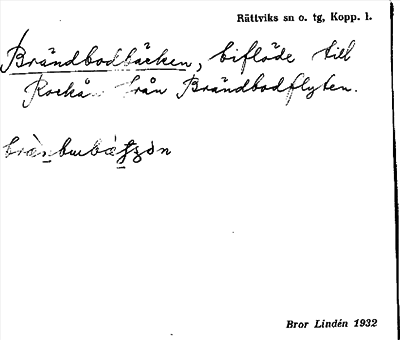 Rättviks sn o. tg, Kopp. l.
Brändbodbäcken, biflöde till
Rockån från Brändbodflyten.
Bror Lindén 1932